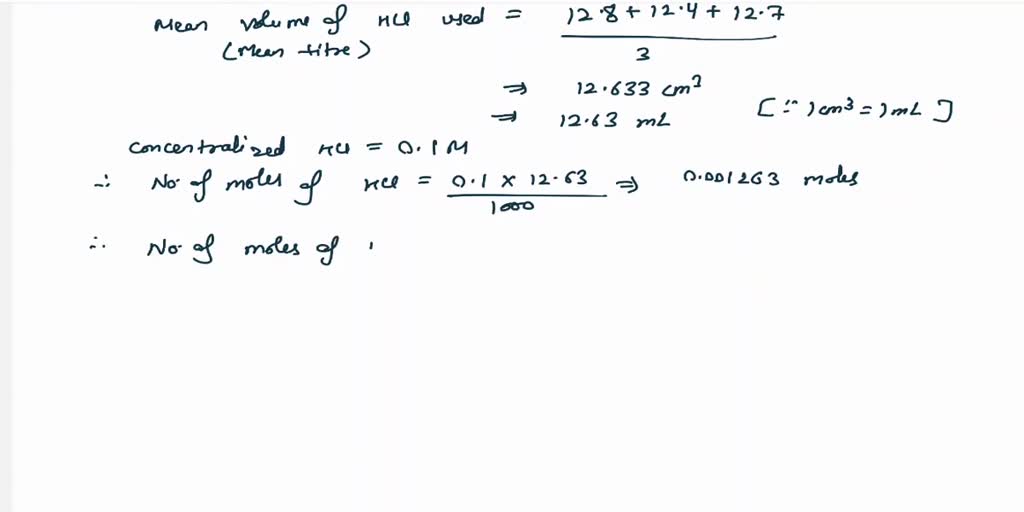 Mean volume of HCl used = 12.8 + 12.4 + 12.7
(Mean titre) 3
⇒ 12.633 cm³
⇒ 12.63 mL [∵ 1cm³ = 1mL]
Concentralized HCl = 0.1 M
∴ No. of moles of HCl = 0.1 × 12.63 ⇒ 0.001263 moles
1000
∴ No. of moles of